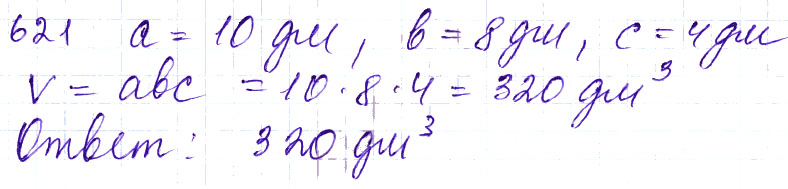 621 a = 10 дм, b = 8 дм, c = 4 дм
V = abc = 10 · 8 · 4 = 320 дм³
Ответ: 320 дм³